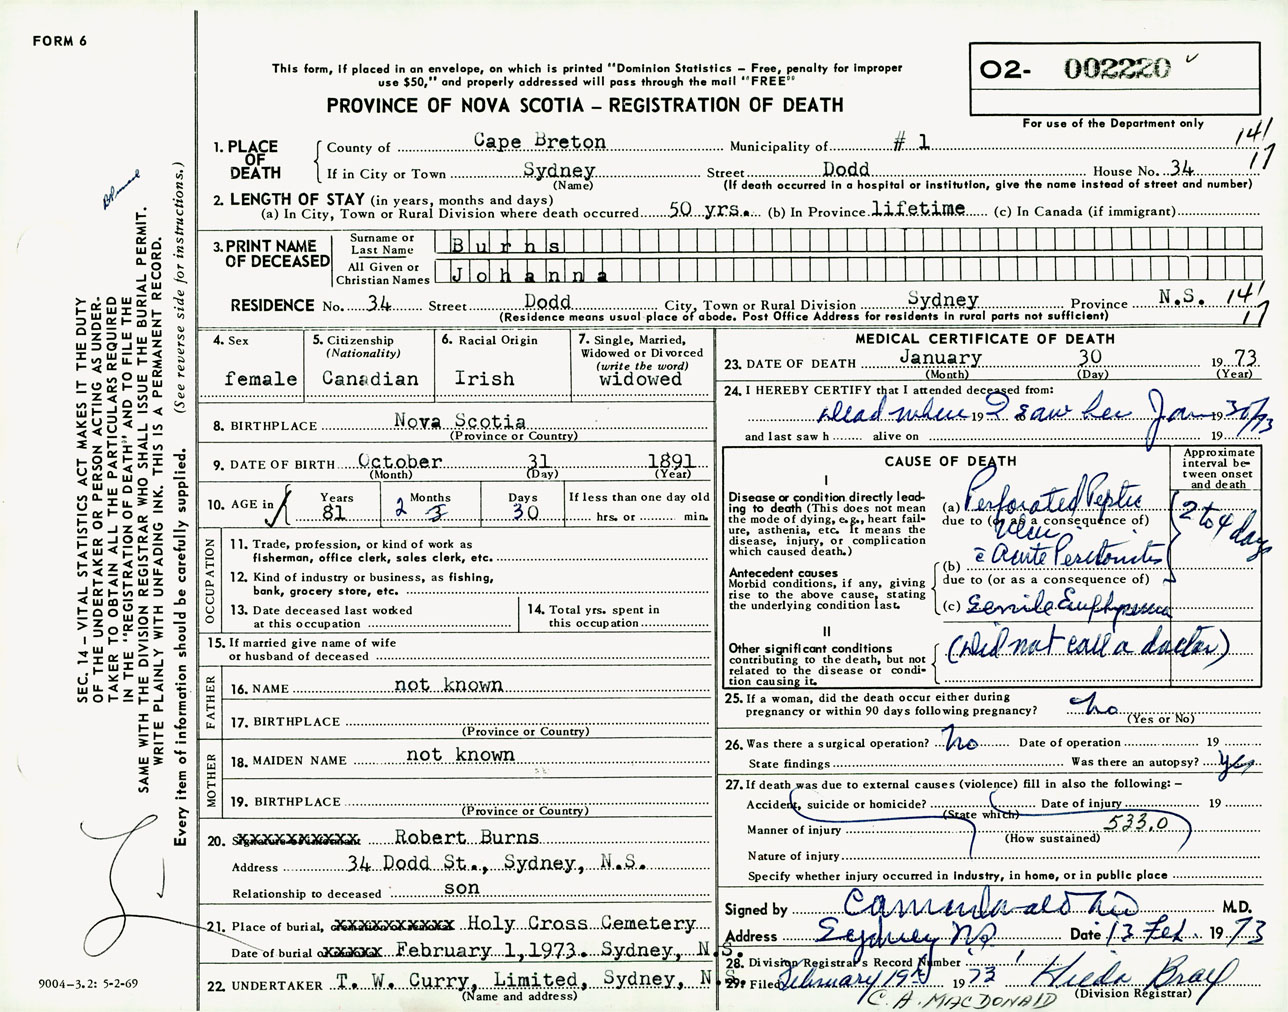 FORM 6
This form, if placed in an envelope, on which is printed "Dominion Statistics – Free, penalty for improper
use $50," and properly addressed will pass through the mail "FREE"
PROVINCE OF NOVA SCOTIA – REGISTRATION OF DEATH
02- 002220
For use of the Department only
141
17
1. PLACE OF DEATH
County of Cape Breton Municipality of # 1
If in City or Town Sydney Street Dodd House No. 34
(Name) (If death occurred in a hospital or institution, give the name instead of street and number)
2. LENGTH OF STAY (in years, months and days)
(a) In City, Town or Rural Division where death occurred 50 yrs. (b) In Province lifetime (c) In Canada (if immigrant)
3. PRINT NAME OF DECEASED
Surname or Last Name Burns
All Given or Christian Names Johanna
RESIDENCE No. 34 Street Dodd City, Town or Rural Division Sydney Province N.S. 141
(Residence means usual place of abode. Post Office Address for residents in rural parts not sufficient) 17
4. Sex
female
5. Citizenship
(Nationality)
Canadian
6. Racial Origin
Irish
7. Single, Married,
Widowed or Divorced
(write the word)
widowed
8. BIRTHPLACE Nova Scotia
(Province or Country)
9. DATE OF BIRTH October 31 1891
(Month) (Day) (Year)
10. AGE in Years Months Days If less than one day old
81 2 3 30 hrs. or min.
OCCUPATION
11. Trade, profession, or kind of work as
fisherman, office clerk, sales clerk, etc.
12. Kind of industry or business, as fishing,
bank, grocery store, etc.
13. Date deceased last worked
at this occupation
14. Total yrs. spent in
this occupation
15. If married give name of wife
or husband of deceased
FATHER
16. NAME not known
17. BIRTHPLACE
(Province or Country)
MOTHER
18. MAIDEN NAME not known
19. BIRTHPLACE
(Province or Country)
20. Signature of informant Robert Burns
Address 34 Dodd St., Sydney, N.S.
Relationship to deceased son
21. Place of burial, cremation or removal Holy Cross Cemetery
Date of burial February 1,1973. Sydney, N.S.
22. UNDERTAKER T. W. Curry, Limited, Sydney, N.S.
(Name and address)
MEDICAL CERTIFICATE OF DEATH
23. DATE OF DEATH January 30 1973
(Month) (Day) (Year)
24. I HEREBY CERTIFY that I attended deceased from:
Dead when I saw her Jan 30/73
and last saw h alive on 19
CAUSE OF DEATH
Approximate
interval be-
tween onset
and death
I
Disease or condition directly lead-
ing to death (This does not mean
the mode of dying, e.g., heart fail-
ure, asthenia, etc. It means the
disease, injury, or complication
which caused death.)
(a) Perforated Peptic
due to (or as a consequence of)
Ulcer
2 to 4 days
Antecedent causes
Morbid conditions, if any, giving
rise to the above cause, stating
the underlying condition last.
(b) Acute Peritonitis
due to (or as a consequence of)
(c) Senile Emphysema
II
Other significant conditions
contributing to the death, but not
related to the disease or condi-
tion causing it.
(Did not call a doctor)
25. If a woman, did the death occur either during
pregnancy or within 90 days following pregnancy? no
(Yes or No)
26. Was there a surgical operation? No Date of operation 19
State findings Was there an autopsy? yes
27. If death was due to external causes (violence) fill in also the following: –
Accident, suicide or homicide? Date of injury 19
(State which)
Manner of injury 533.0
(How sustained)
Nature of injury
Specify whether injury occurred in industry, in home, or in public place
Signed by M.D.
Address Sydney NS Date 13 Feb 1973
28. Division Registrar's Record Number 1
29. Filed February 19th 1973 Hilda Bray
(Division Registrar)
C. A. MACDONALD
SEC. 14 – VITAL STATISTICS ACT MAKES IT THE DUTY
OF THE UNDERTAKER OR PERSON ACTING AS UNDER-
TAKER TO OBTAIN ALL THE PARTICULARS REQUIRED
IN THE "REGISTRATION OF DEATH" AND TO FILE THE
SAME WITH THE DIVISION REGISTRAR WHO SHALL ISSUE THE BURIAL PERMIT.
WRITE PLAINLY WITH UNFADING INK. THIS IS A PERMANENT RECORD.
Every item of information should be carefully supplied. (See reverse side for instructions.)
9004-3.2: 5-2-69